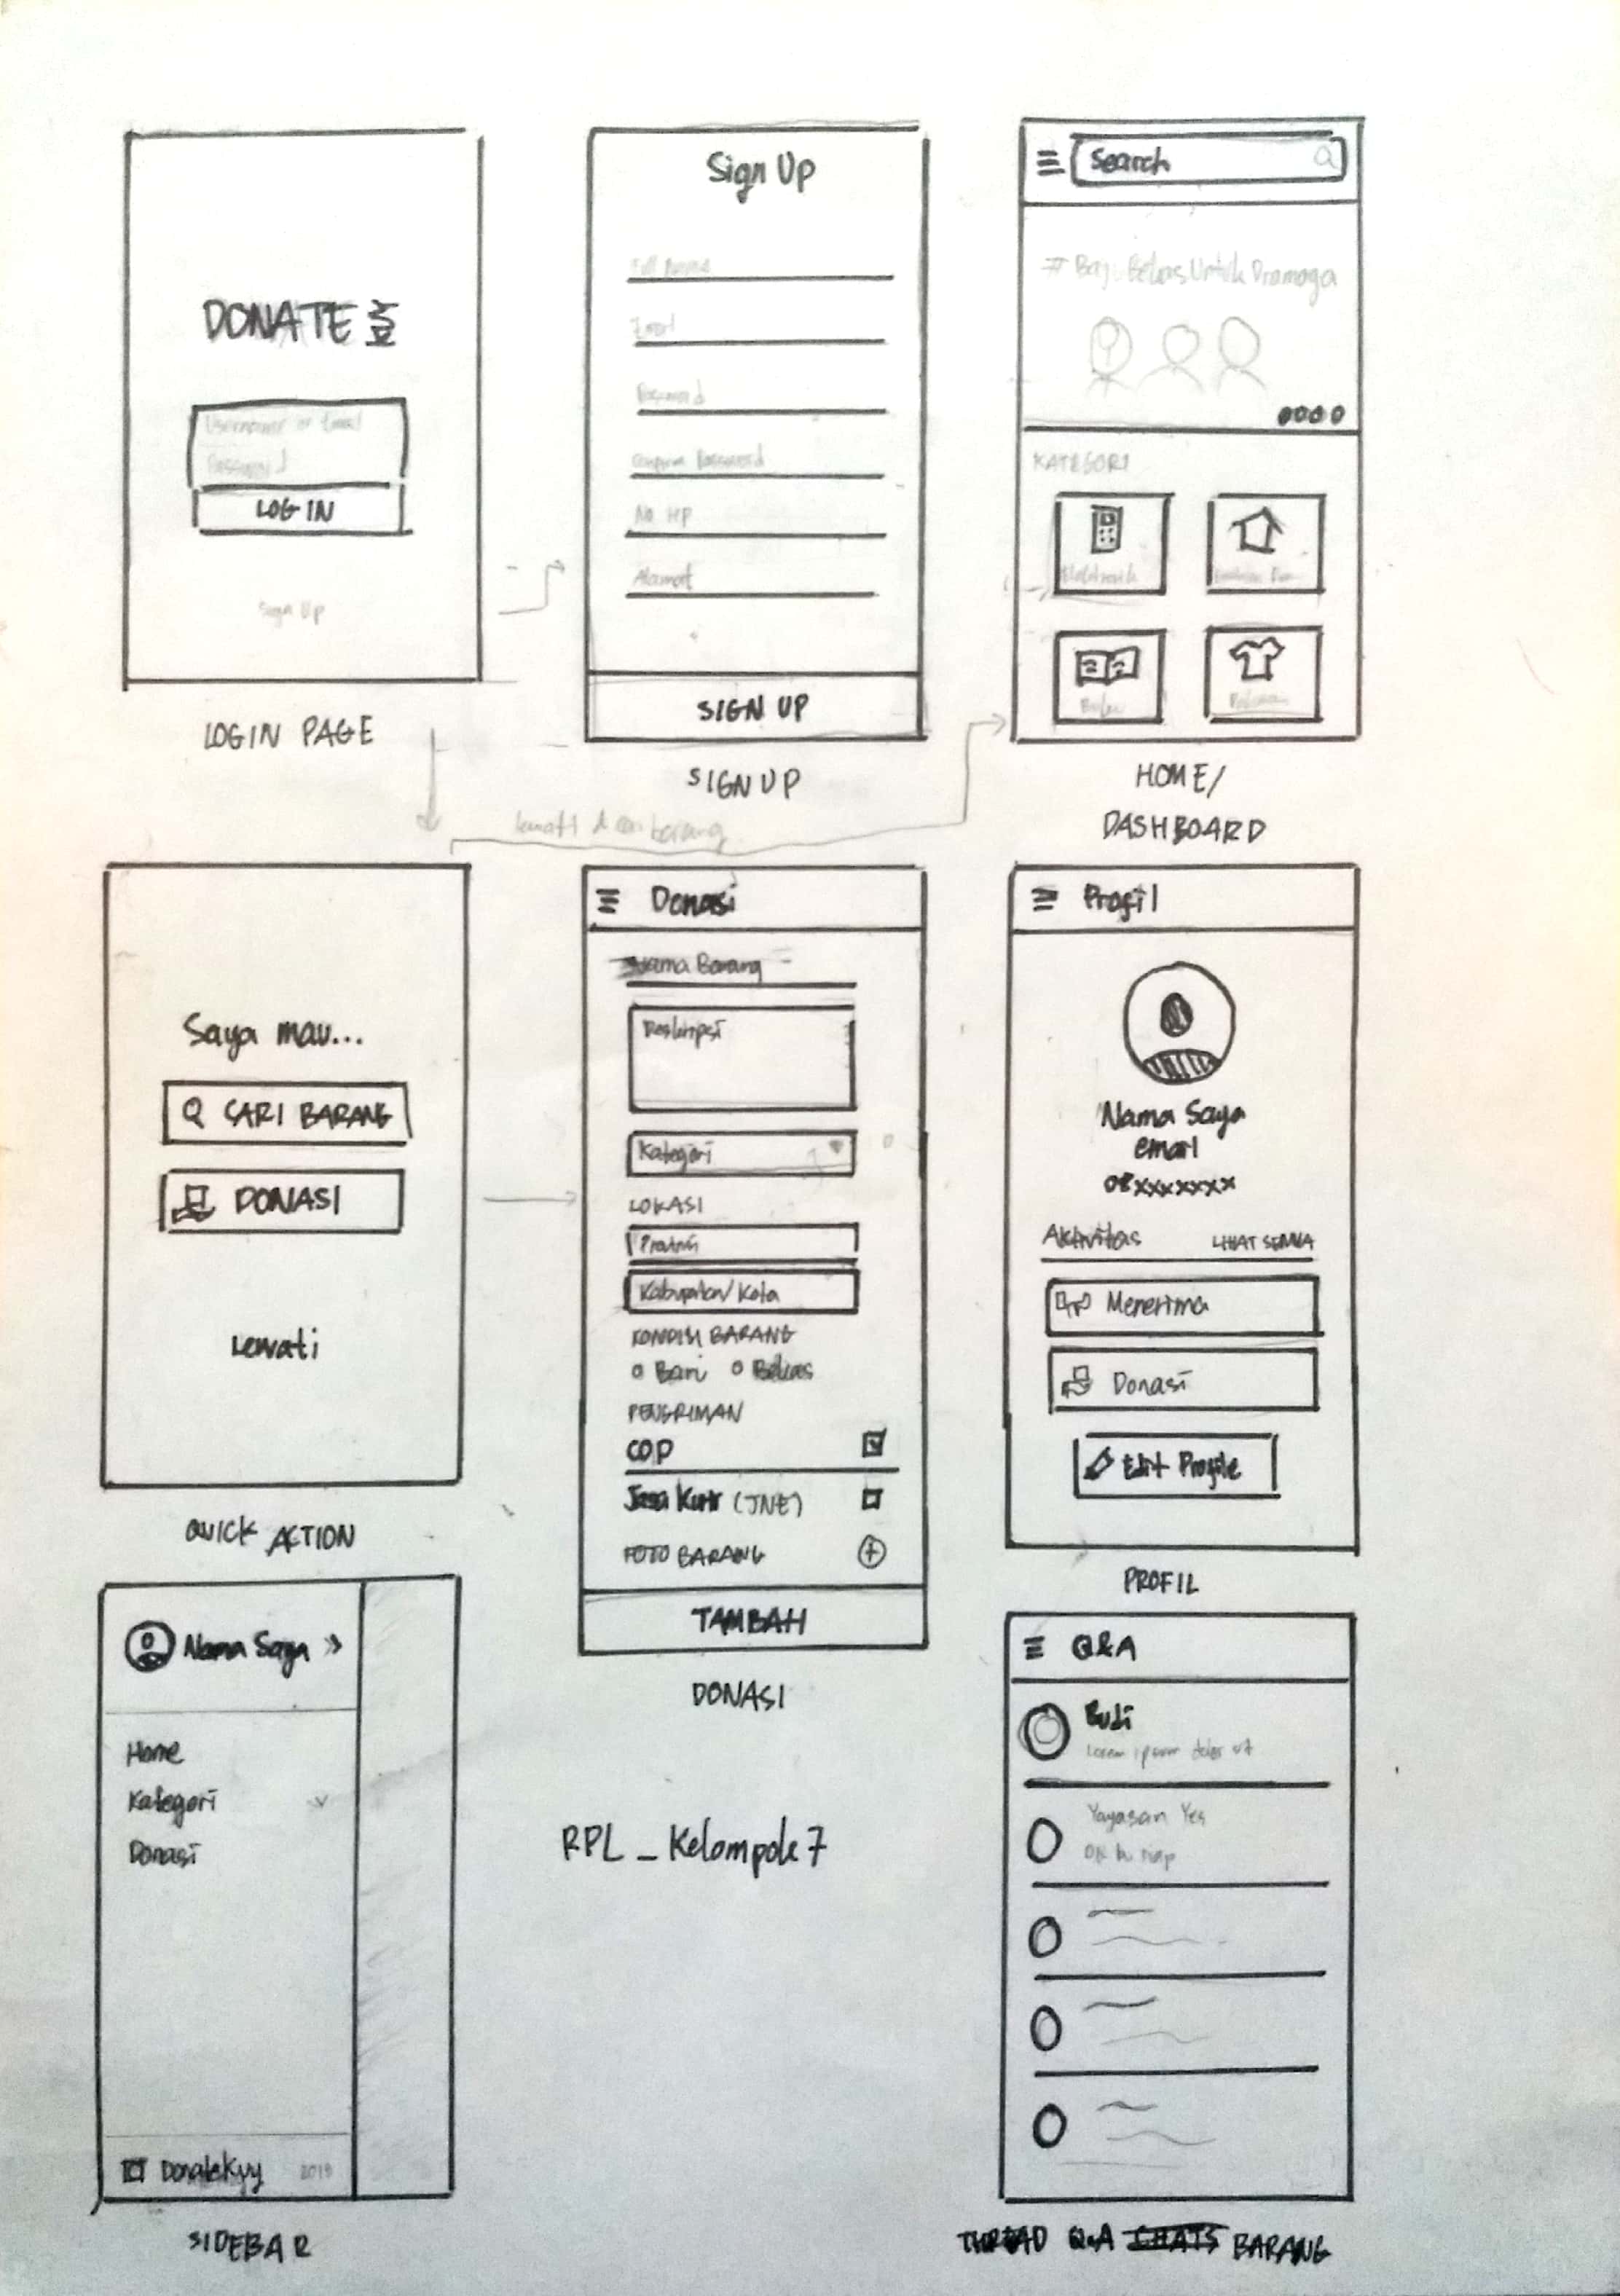 DONATE
Username or Email
Password
LOG IN
Sign Up
LOGIN PAGE
Sign Up
Full Name
Email
Password
Confirm Password
No HP
Alamat
SIGN UP
SIGN UP
Search
Bekas Untuk Dramaga
KATEGORI
Elektronik
Buku
Pakaian
HOME/
DASHBOARD
Saya mau...
CARI BARANG
DONASI
Lewati
QUICK ACTION
Donasi
Nama Barang
Deskripsi
Kategori
LOKASI
Provinsi
Kabupaten/Kota
KONDISI BARANG
Baru Bekas
PENGIRIMAN
COD
Jasa Kurir (JNE)
FOTO BARANG
TAMBAH
DONASI
Profil
Nama Saya
email
08xxxxxxxx
Aktivitas LIHAT SEMUA
Menerima
Donasi
Edit Profile
PROFIL
Nama Saya »
Home
Kategori
Donasi
DonateKuy 2019
SIDEBAR
RPL_Kelompok 7
Q&A
Budi
Lorem ipsum dolor ut
Yayasan Yes
THREAD Q&A CHATS BARANG